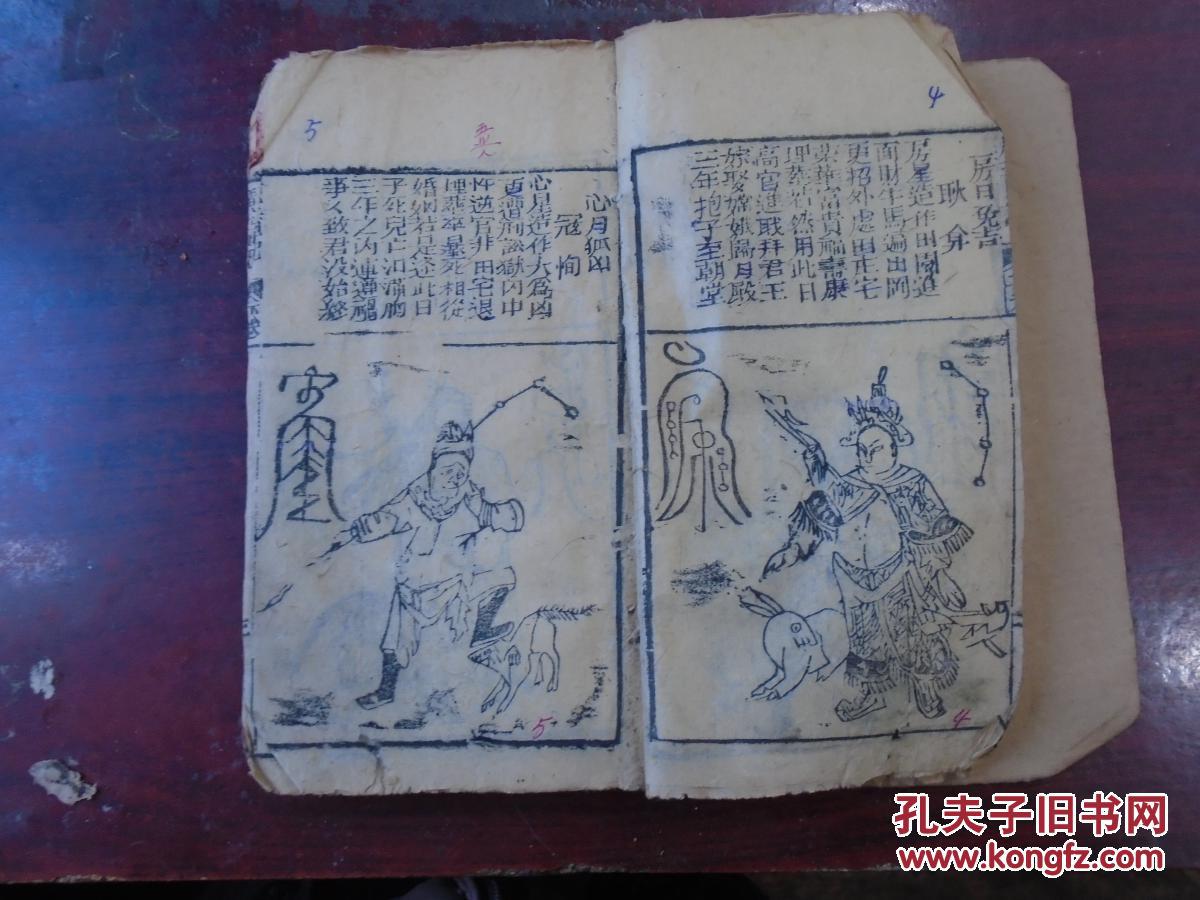 4
房日兔吉
耿弇
房星造作田園進
面財牛馬遍山岡
更招外處田庄宅
荣華富貴福壽康
埋葬若然用此日
高官進職拜君王
嫁娶嫦娥歸月殿
三年抱子至朝堂
4
5
心月狐凶
冦恂
心星造作大為凶
更遭刑訟獄囚中
忤逆官非田宅退
埋葬卒暴死相從
婚姻若是逢此日
子死兒亡泪滿胸
三年之内連遭禍
事々致君没始終
5
孔夫子旧书网
www.kongfz.com